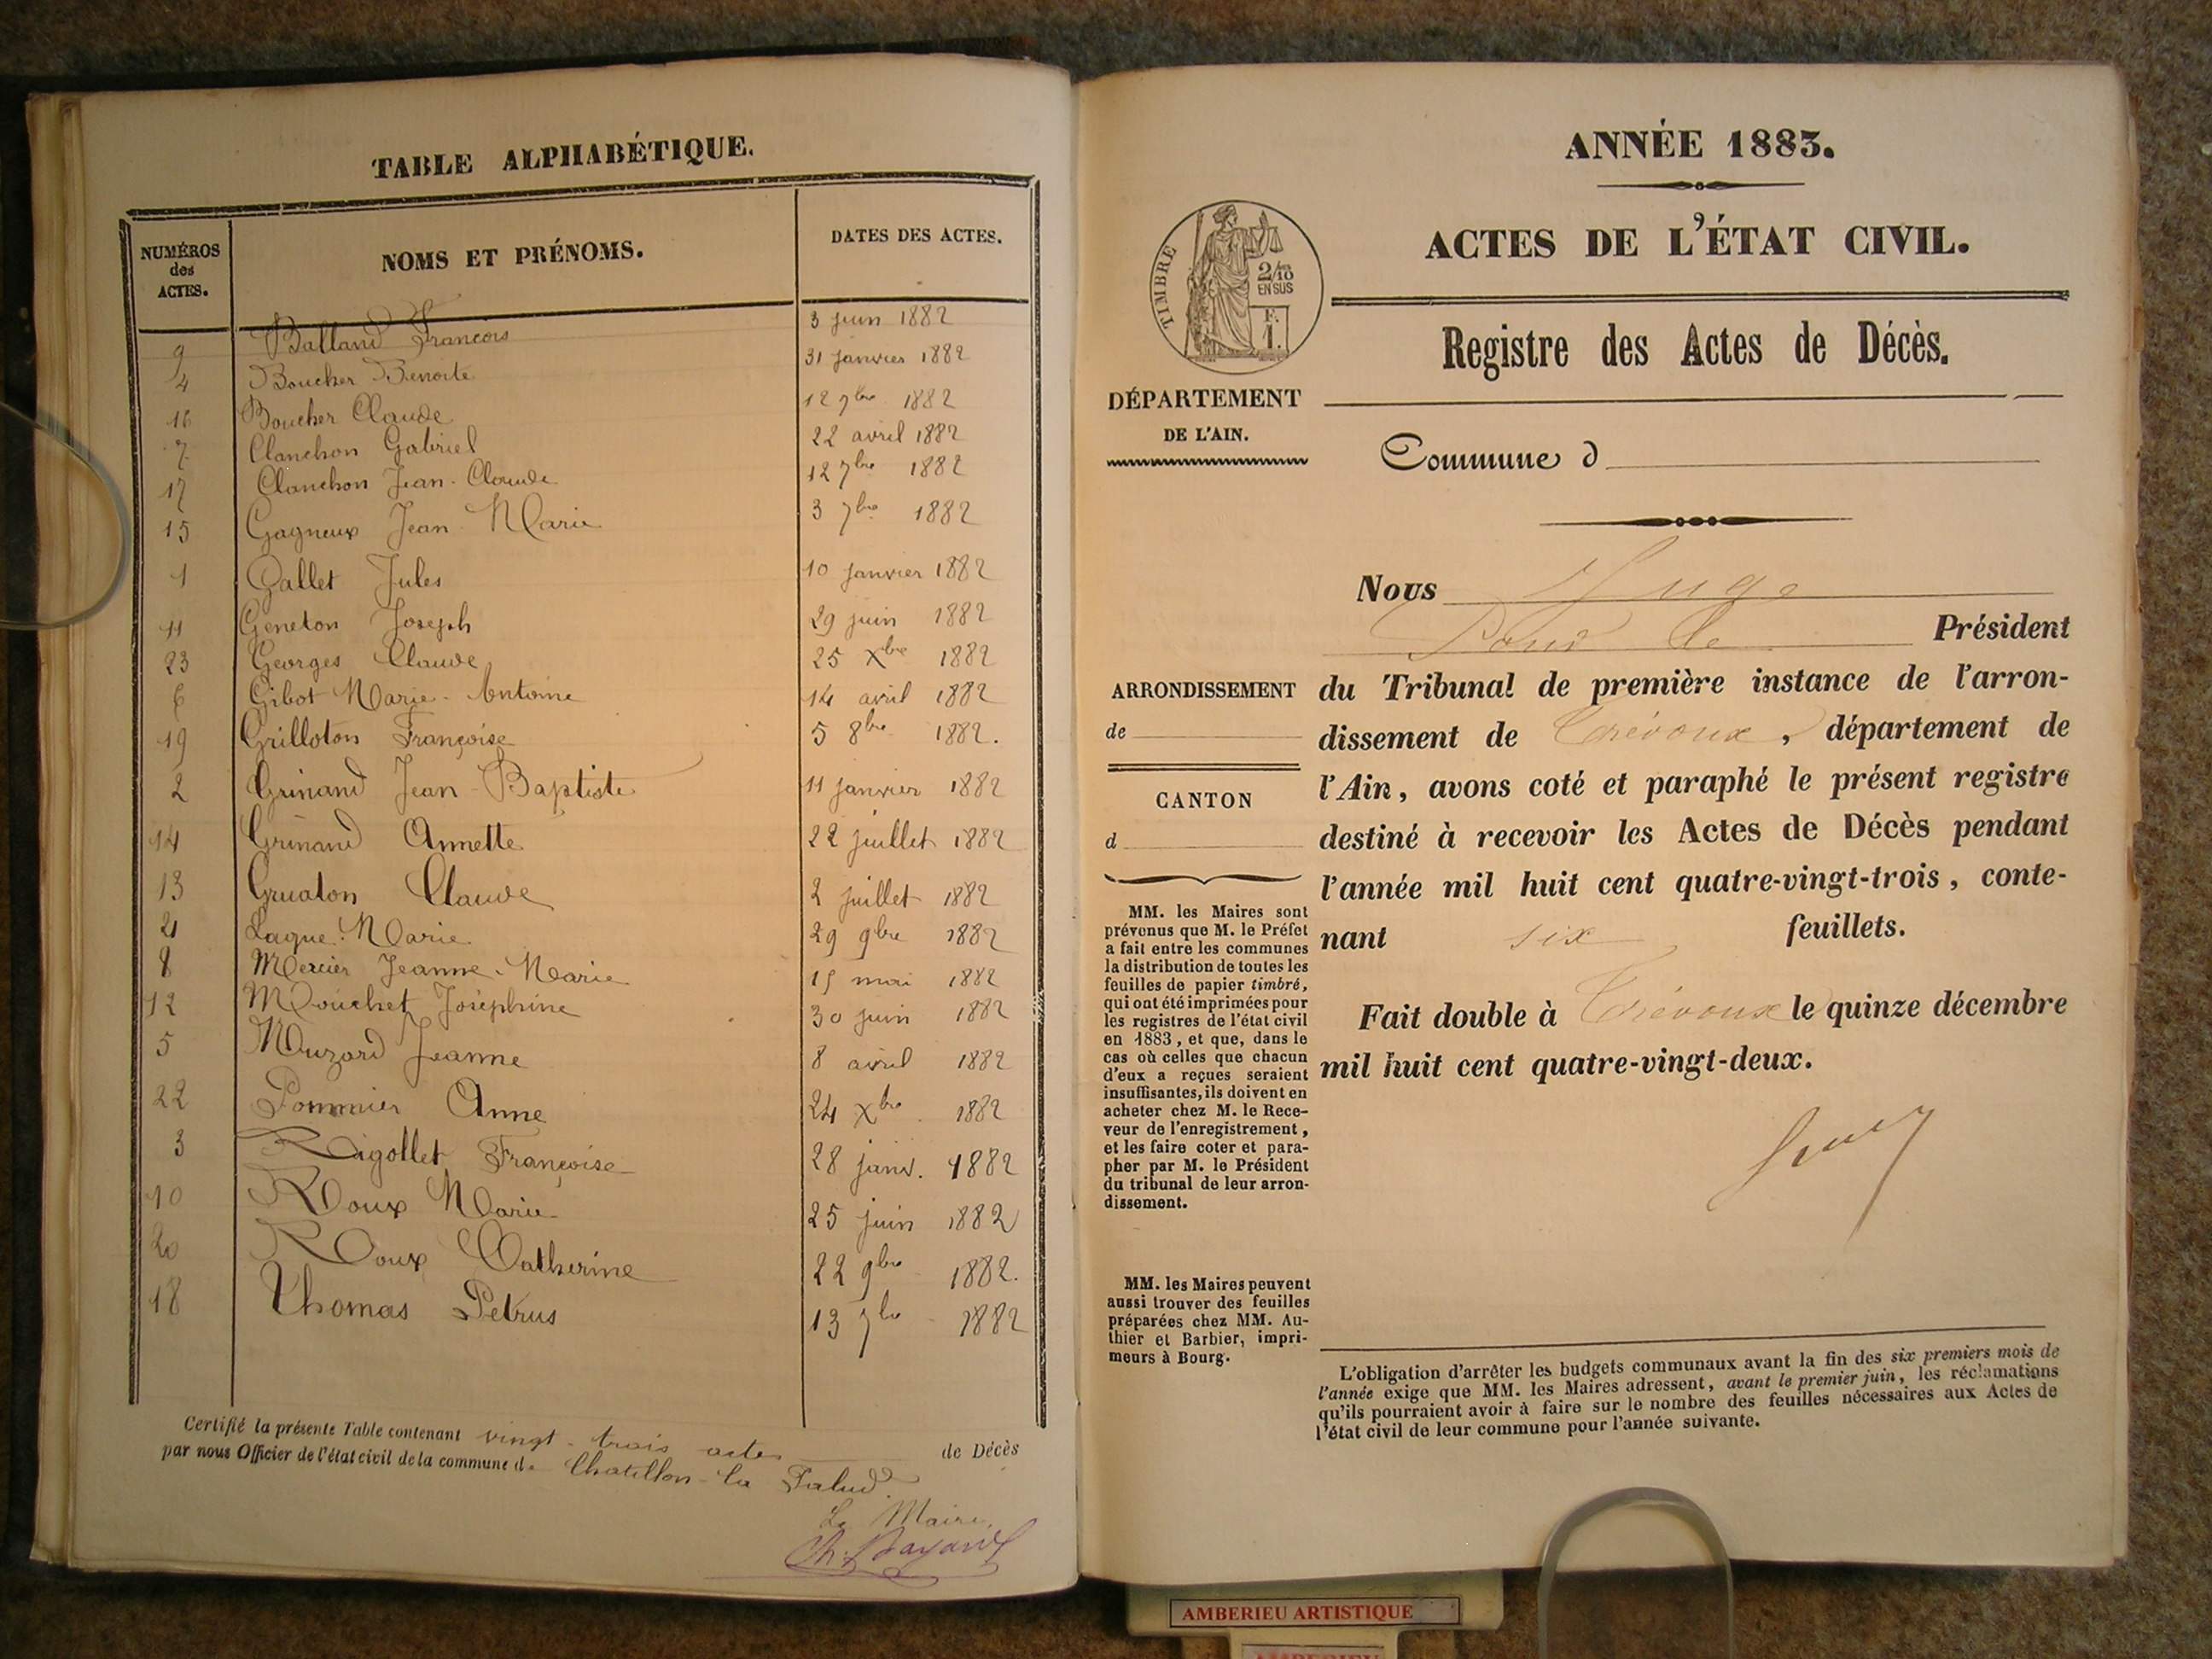 TABLE ALPHABÉTIQUE.
NUMÉROS des ACTES. NOMS ET PRÉNOMS. DATES DES ACTES.
9 Balland François 3 juin 1882
4 Boucher Benoite 31 janvier 1882
16 Boucher Claude 12 7bre 1882
7 Clanchon Gabriel 22 avril 1882
17 Clanchon Jean-Claude 12 7bre 1882
15 Gagneux Jean-Marie 3 7bre 1882
1 Gallet Jules 10 janvier 1882
11 Geneton Joseph 29 juin 1882
23 Georges Claude 25 Xbre 1882
6 Gibot Marie-Antoine 14 avril 1882
19 Grilloton Françoise 5 8bre 1882.
2 Grinand Jean-Baptiste 11 janvier 1882
14 Grinand Annette 22 juillet 1882
13 Gualon Claude 2 juillet 1882
21 Laque Marie 29 9bre 1882
8 Mercier Jeanne-Marie 15 mai 1882
12 Mouchet Joséphine 30 juin 1882
5 Muzard Jeanne 8 avril 1882
22 Pommier Anne 24 Xbre 1882
3 Rigollet Françoise 28 janv. 1882
10 Roux Marie 25 juin 1882
20 Roux Catherine 22 9bre 1882.
18 Thomas Petrus 13 7bre 1882
Certifié la présente Table contenant vingt-trois actes de Décès
par nous Officier de l'état civil de la commune de Chatillon-la Palud.
Le Maire,
Ch. Bayard
ANNÉE 1883.
ACTES DE L'ÉTAT CIVIL.
TIMBRE
2/10 EN SUS
F. 1.
Registre des Actes de Décès.
DÉPARTEMENT
DE L'AIN.
Commune d
Nous Juge
Pour le Président
ARRONDISSEMENT
de
CANTON
d
du Tribunal de première instance de l'arron-
dissement de Trévoux, département de
l'Ain, avons coté et paraphé le présent registre
destiné à recevoir les Actes de Décès pendant
l'année mil huit cent quatre-vingt-trois, conte-
nant six feuillets.
Fait double à Trévoux le quinze décembre
mil huit cent quatre-vingt-deux.
MM. les Maires sont
prévenus que M. le Préfet
a fait entre les communes
la distribution de toutes les
feuilles de papier timbré,
qui ont été imprimées pour
les registres de l'état civil
en 1883, et que, dans le
cas où celles que chacun
d'eux a reçues seraient
insuffisantes, ils doivent en
acheter chez M. le Rece-
veur de l'enregistrement,
et les faire coter et para-
pher par M. le Président
du tribunal de leur arron-
dissement.
MM. les Maires peuvent
aussi trouver des feuilles
préparées chez MM. Au-
thier et Barbier, impri-
meurs à Bourg.
L'obligation d'arrêter les budgets communaux avant la fin des six premiers mois de
l'année exige que MM. les Maires adressent, avant le premier juin, les réclamations
qu'ils pourraient avoir à faire sur le nombre des feuilles nécessaires aux Actes de
l'état civil de leur commune pour l'année suivante.
AMBERIEU ARTISTIQUE
AMBERIEU